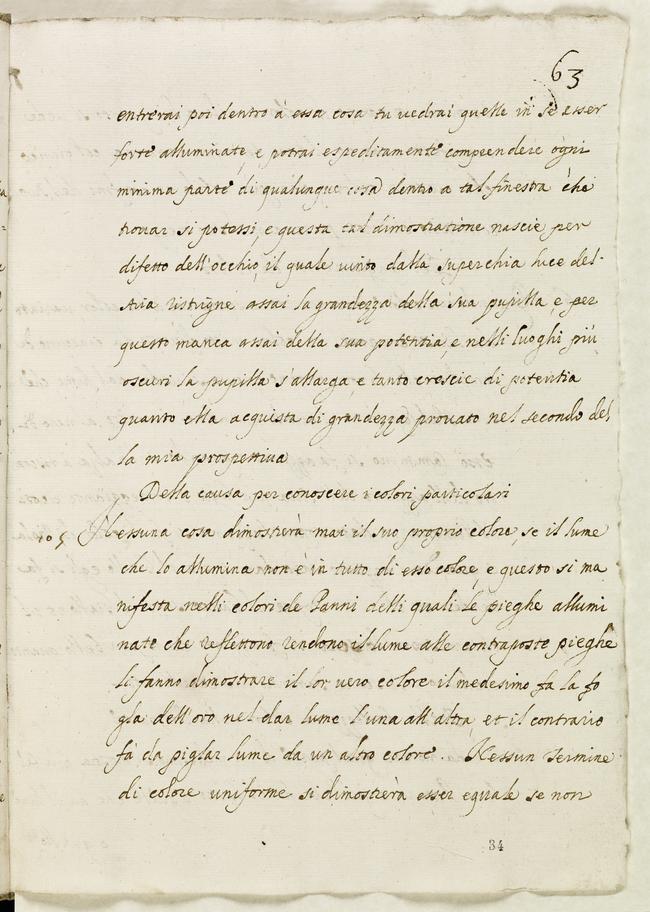 63
entrerai poi dentro à essa cosa tu vedrai quelle in se esser
forte alluminate, e potrai espeditamente compendere ogni
minima parte di qualunque cosa dentro a tal finestra che
trovar si potessi, e questa tal dimostratione nascie per
difetto dell'occhio, il quale vinto dalla superchia luce del-
Aria ristrigne assai la grandezza della sua pupilla, e per
questo manca assai della sua potentia, e nelli luoghi più
oscuri la pupilla s'allarga, e tanto crescie di potentia
quanto ella acquista di grandezza provato nel secondo del
la mia prospettiva
Della causa per conoscere i colori particolari
105 Nessuna cosa dimosterà mai il suo proprio colore, se il lume
che lo allumina non è in tutto di esso colore, e questo si ma
nifesta nelli colori de Panni delli quali le pieghe allumi
nate che reflettono rendono il lume alle contraposte pieghe
li fanno dimostrare il lor vero colore il medesimo fa la fo
gla dell'oro nel dar lume l'una all'altra, et il contrario
fà da piglar lume da un altro colore. Nessun termine
di colore uniforme si dimostrerà esser equale se non
34